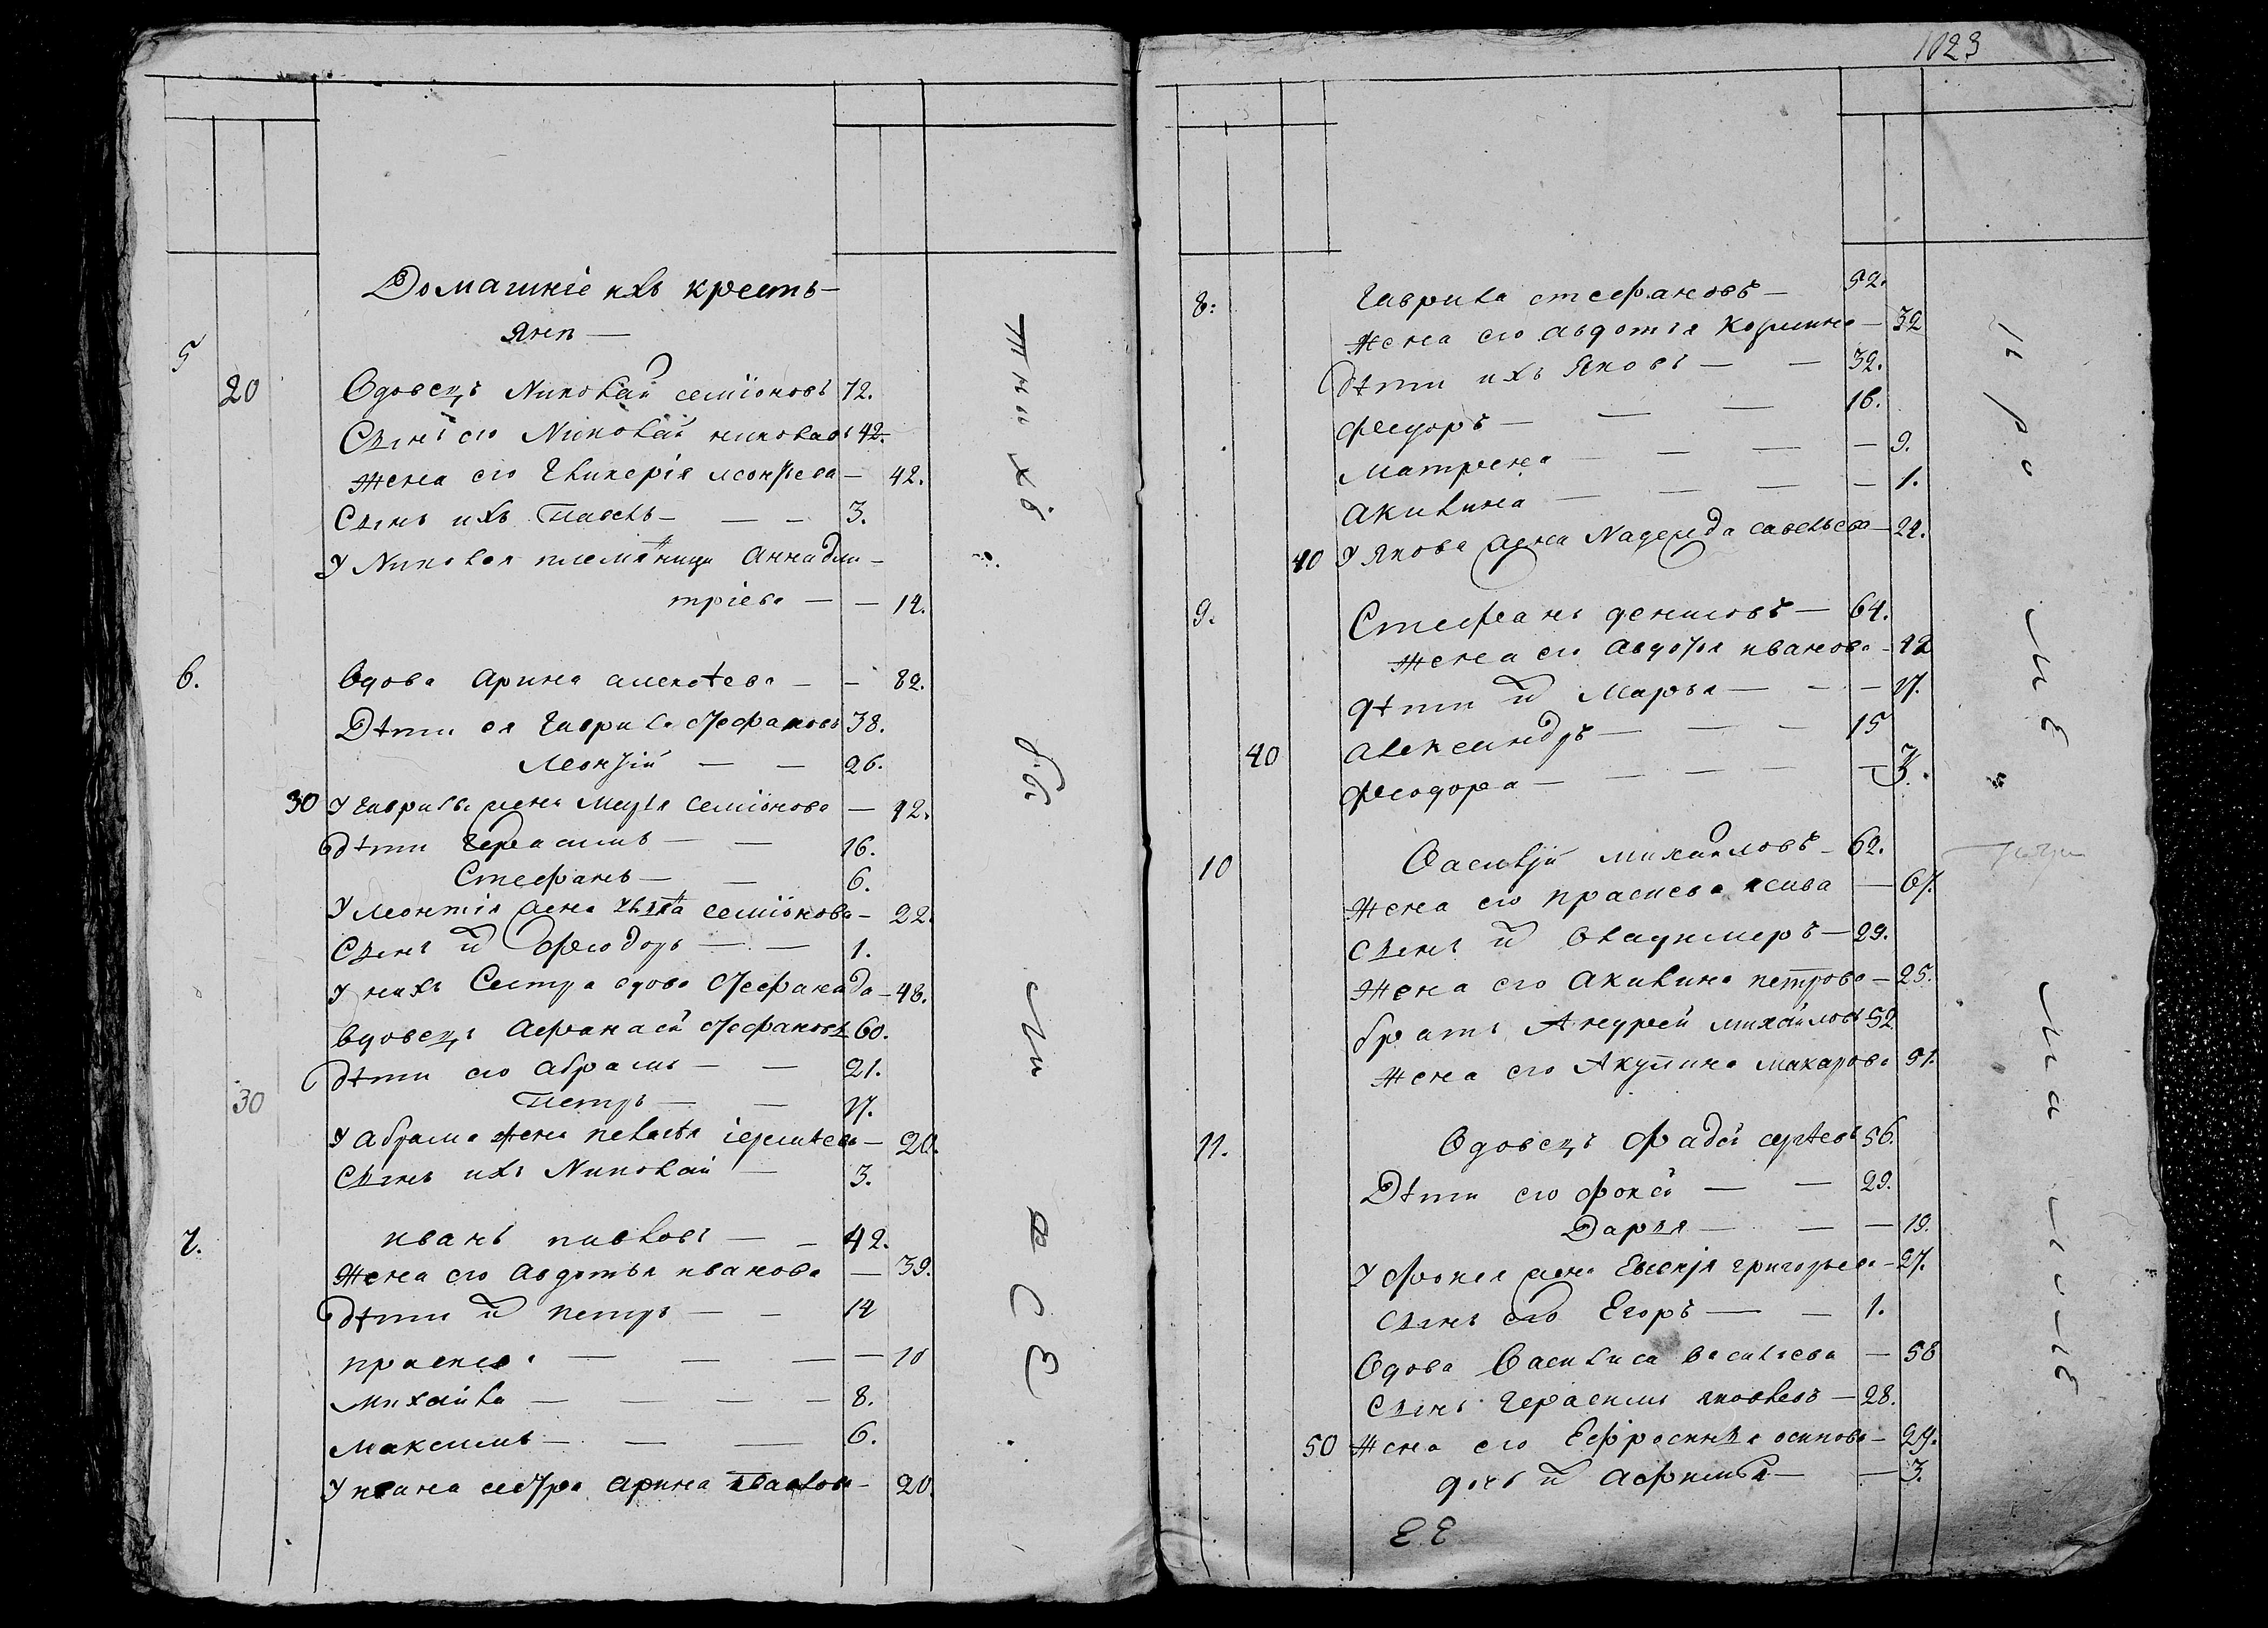 Домашніе ихъ кресть-
яне —
5
20 Вдовецъ Николай семіоновъ 72.
Сынъ его Николай николаев 42.
жена его Гликерія леонтьева — 42.
Сынъ ихъ Павелъ — — — 3.
У Николая племяница Анна дми-
тріева — — 14.
6. Вдова Арина алексѣева — — 82.
Дѣти ея Гаврила стефановъ 38.
Леонтій — — 26.
30 У Гаврилы жена Марья семіонова — 42.
дѣти Герасимъ — — 16.
Стефанъ — — 6.
У Леонтія жена семіонова — 22.
Сынъ их Феодоръ — — 1.
У нихъ Сестра вдова Стефанида — 48.
вдовецъ Афанасей стефановъ 60.
дѣти его Абрамъ — — 21.
30 Петръ — — 17.
У Абрама жена Пелагея еремѣева — 20.
Сынъ ихъ Николай — 3.
7. Иванъ павловъ — — 42.
Жена его Авдотья иванова — 39.
Дѣти их петръ — — 14
прасковья — — — — 10
Михайла — — — — 8.
Максимъ — — — 6.
У ивана сестра Арина павлова — 20.
1023
8. Гаврила стефановъ — 52.
Жена его Авдотія — 32
Дѣти ихъ Яковъ — — 32.
Федоръ — — — 16.
Матрена — — — — 9.
Акилина — — — — 1.
40 У Якова жена Надежда савельева — 24.
9. Стефанъ денисовъ — 64.
Жена его Авдотья иванова — 42
дѣти их Марья — — — 17.
40 Александръ — — — 15
Феодора — — — — — 3.
10 Василій михайловъ — 62.
Жена его прасковья — 67.
Сынъ их Владимеръ — 29.
Жена его Акилина петрова — 25.
братъ Андрей михайловъ 52
Жена его Акулина макарова 51.
11. Вдовецъ Фадей сергѣевъ 56.
Дѣти его фокей — — 29.
Дарья — — — 19.
У Фокея жена Евгенія григорьева — 27.
Сынъ его Егоръ — — 1.
Вдова Василиса васильева — 58
Сынъ Герасимъ яковлевъ — 28.
50 Жена его Ефросинья осипова — 29.
дочь их Афимья — — 3.
Е.Е